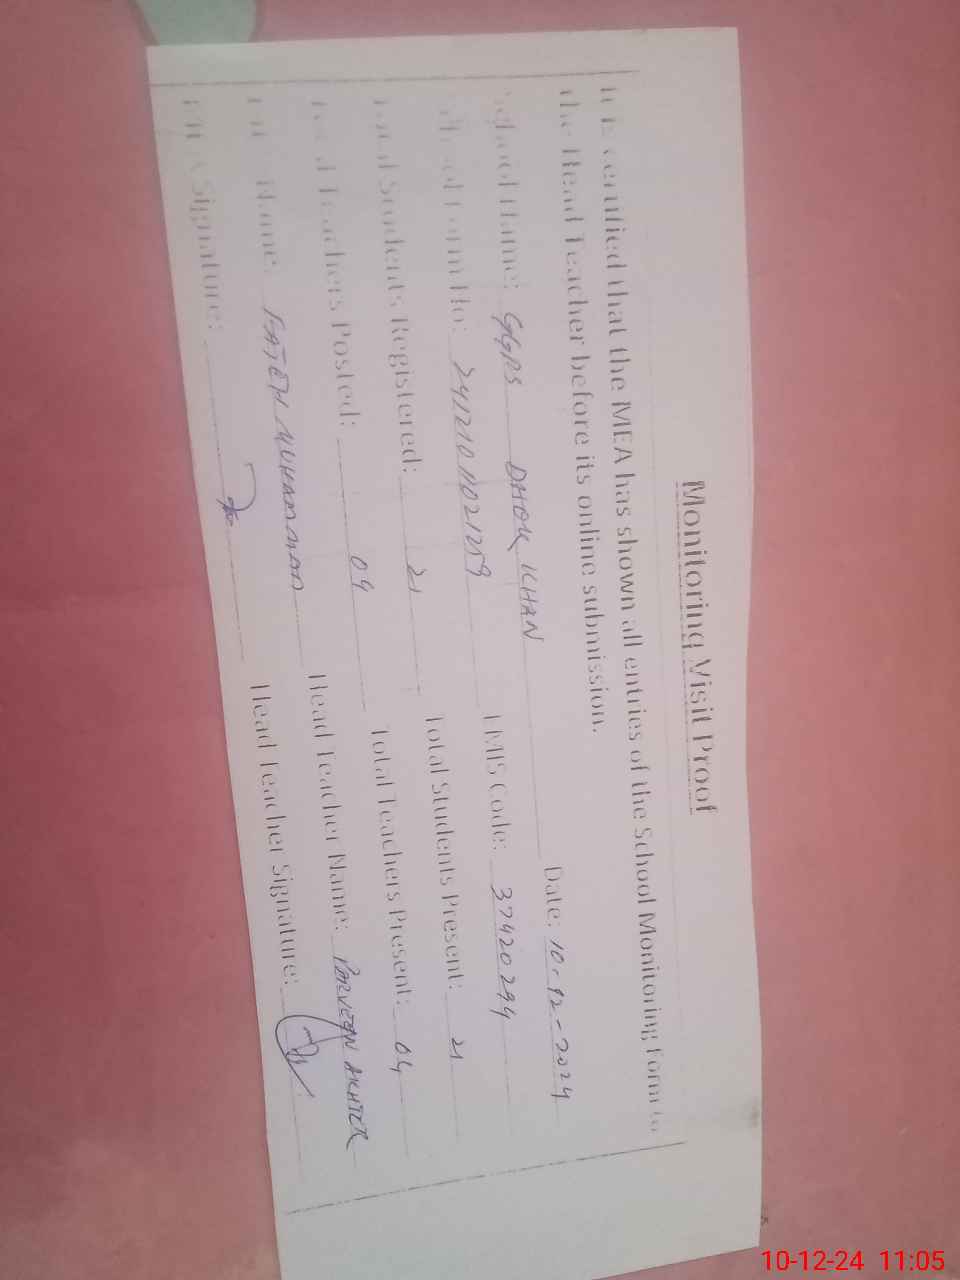 Monitoring Visit Proof
It is certified that the MEA has shown all entries of the School Monitoring Form to
the Head Teacher before its online submission.
School Name: GGPS DHOK KHAN Date: 10-12-2024
Form No: 241210110212159 EMIS Code: 37420294
Total Students Registered: 21 Total Students Present: 21
Total Teachers Posted: 04 Total Teachers Present: 04
Name: FATEH MUHAMMAD Head Teacher Name: PARVEEN AKHTER
Signature: Head Teacher Signature:
10-12-24 11:05